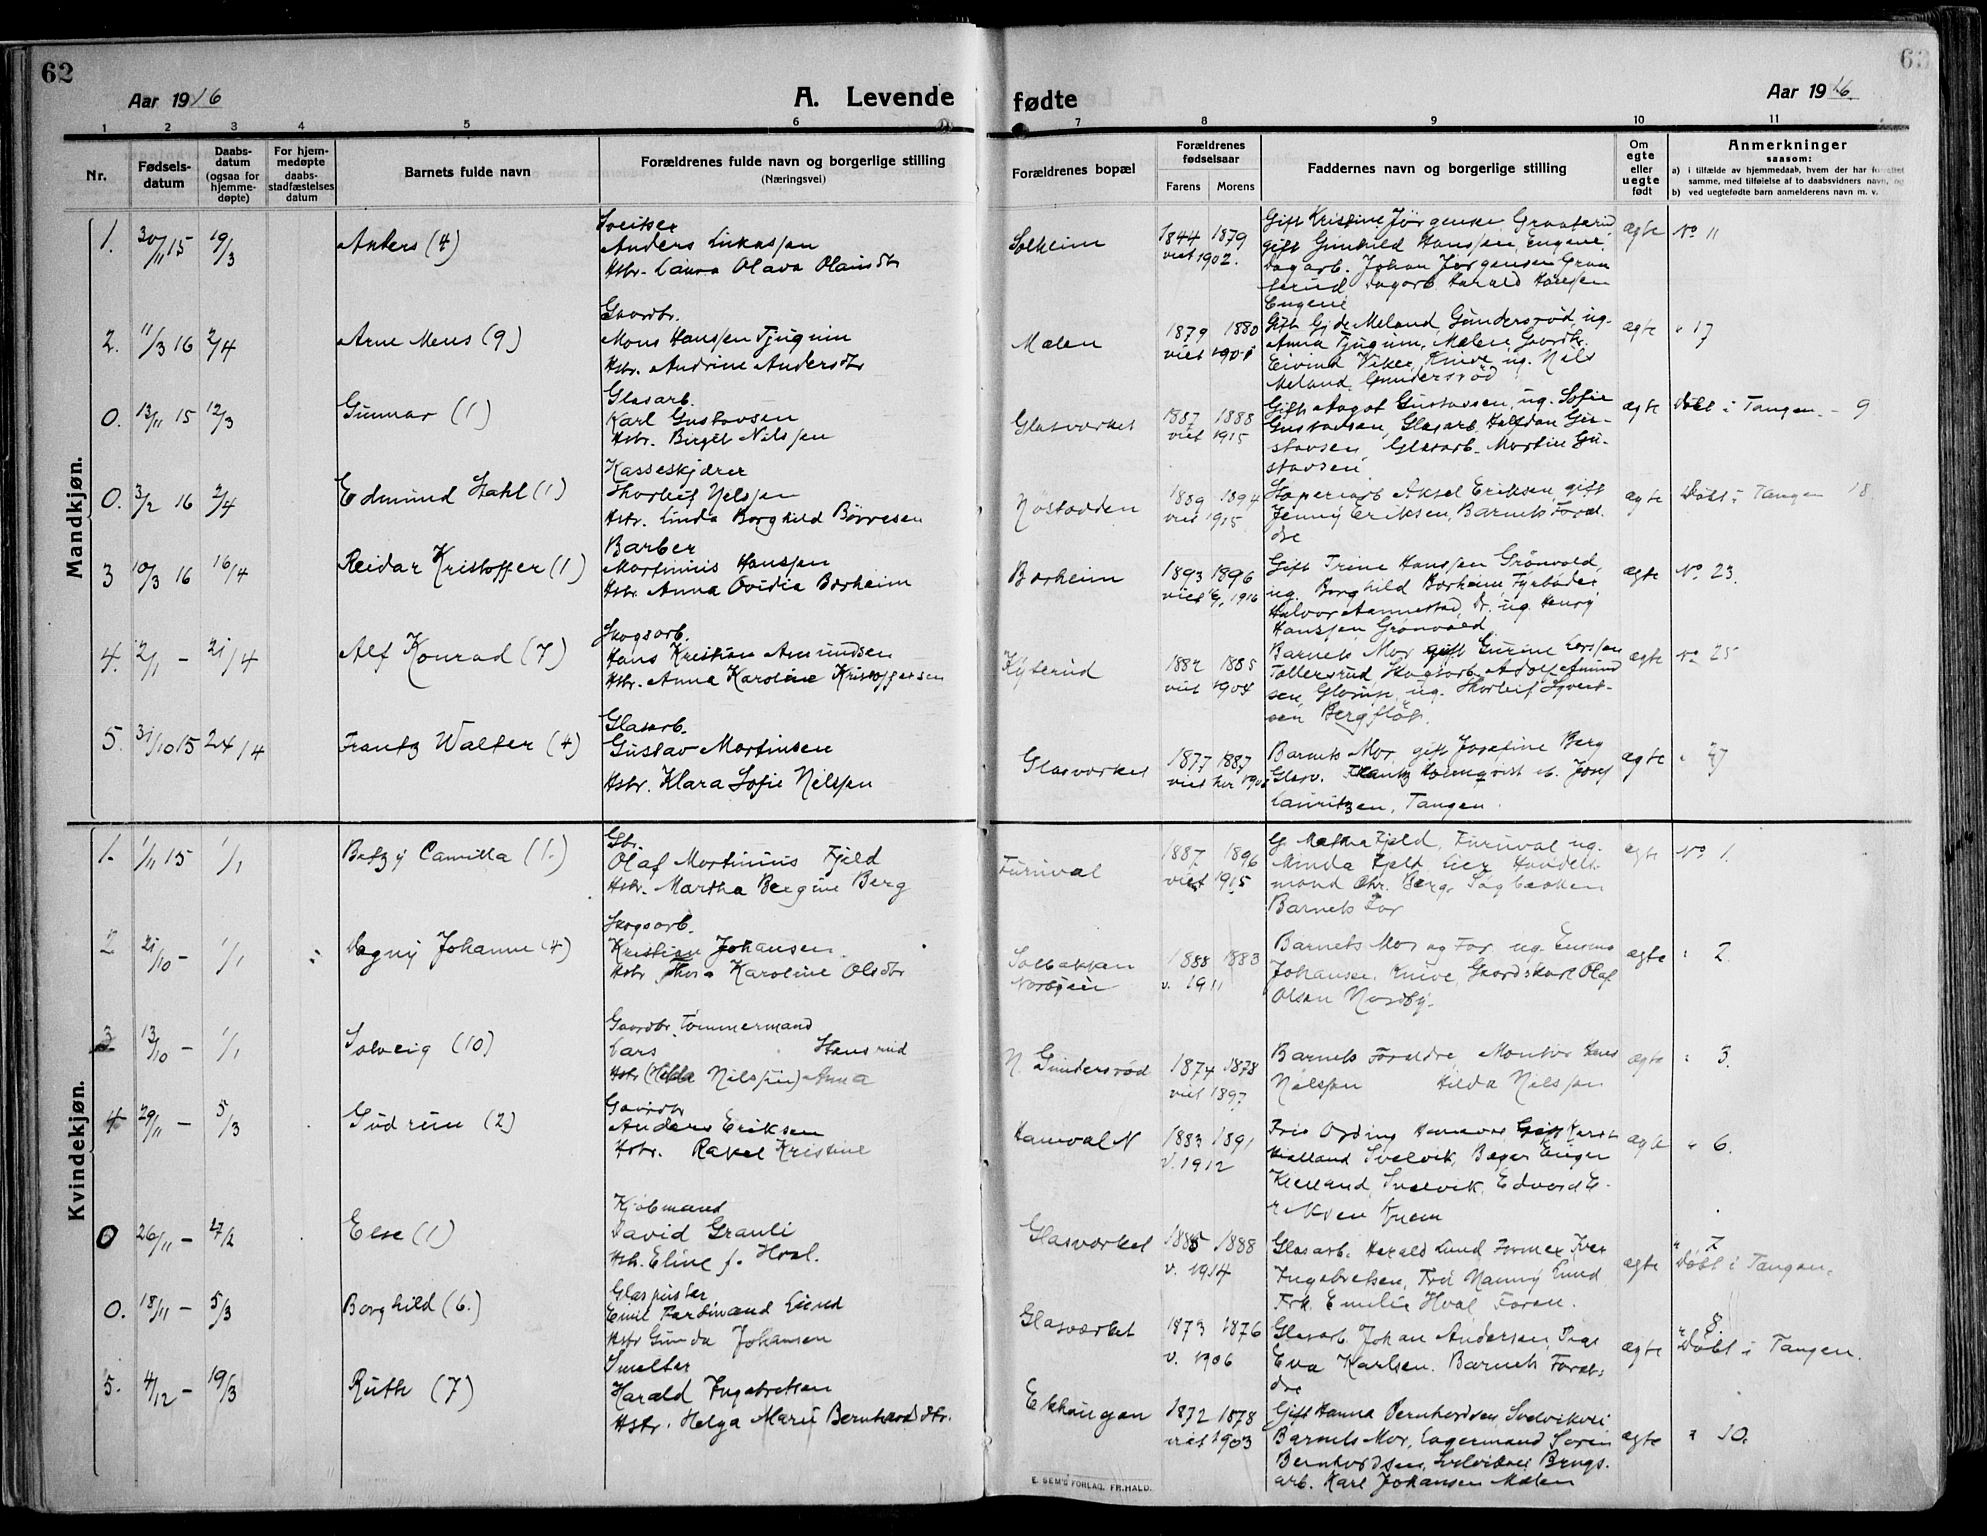 62
63
Aar 1916
A. Levende
fødte
Aar 1916
1 2 3 4 5 6 7 8 9 10 11
Nr.
Fødsels-
datum
Daabs-
datum
(ogsaa for
hjemme-
døpte)
For hjem-
medøpte
daabs-
stadfæstelses
datum
Barnets fulde navn
Forældrenes fulde navn og borgerlige stilling
(Næringsvei)
Forældrenes bopæl
Forældrenes
fødselsaar
Farens Morens
Faddernes navn og borgerlige stilling
Om
egte
eller
uegte
født
Anmerkninger
saasom:
a) i tilfælde av hjemmedaab, hvem der har forrettet
samme, med tilføielse af to daabsvidners navn, og
b) ved uegtefødte barn anmelderens navn m. v.
Mandkjøn.
1. 30/11 15 19/3 Anders (4)
Sveitser
Anders Lukassen
Hstr. Laura Olava Olausdtr
Solheim
1844 1879
viet 1902.
Gift Kristine Jørgensen
gift Gunhild Hanssen, Engene,
Dagarb. Johan Jørgensen
Dagarb. Harald Hanssen
Engene
ægte No 11
2. 11/3 16 2/4 Arne Mens (9)
Gaardbr.
Mons Hanssen Tjugum
Hstr. Andrine Andersdtr
Mælen
1879 1880
viet 1901
Gift Meland, Gundersrød, ug.
Anna Tjugum, Mælen, Gaardbr.
Eivind Viker, Knive, ug. Nils
Meland, Gundersrød
ægte " 17
0. 13/11 15 12/3 Gunnar (1)
Glasarb.
Karl Gustavsen
Hstr. Birgit Nilssen
Glasværket
1887 1888
viet 1915
Gift Aagot Gustavsen, ug. Sofie
Gustavsen, Glasarb. Halfdan Gu-
stavsen, Glasarb. Martin Gu-
stavsen
ægte Døbt i Tangen - 9
0. 3/2 16 2/4 Edmund Stahl (1)
Kasseskjærer
Thorleif Nilssen
Hstr. Linda Borghild Børresen
Nøstodden
1889 1894
viet 1915.
Aksel Eriksen, gift
Jenny Eriksen, Barnets Foræl-
dre
ægte Døbt i Tangen 18
3 10/3 16 16/4 Reidar Kristoffer (1)
Barber
Martinius Hanssen
Hstr. Anna Ovidia Borheim
Borheim
1893 1896
viet 1916
Gift Trine Hanssen Grønvold,
ug. Borghild Borheim, Fyrbøder
Halvor Aannestad, Dr. ug. Henry
Hanssen Grønvold
ægte No 23.
4. 2/1 - 21/4 Alf Konrad (7)
Skogsarb.
Hans Kristian Amundsen
Hstr. Anna Karoline Kristoffersen
Kyterud
1882 1885
viet 1904
Barnets Mor, gift Gurine Larssen
Tollersrud, Skogsarb. Adolf Amund
sen, Glorup, ug. Thorleif Syvert-
sen Bergfløt.
ægte No 25
5. 31/10 15 24/4 Frantz Walter (4)
Glasarb.
Gustav Martinsen
Hstr. Klara Sofie Nilssen
Glasværket
1877 1887
viet
Barnets Mor, gift Josefine Berg
Glasv. Frantz Holmqvist Josef
Lauritzen, Tangen.
ægte " 27
Kvindekjøn.
1. 1/11 15 1/1 Betzy Camilla (1.)
Gbr.
Olaf Martinius Fjeld
Hstr. Martha Bergine Berg
Furuval
1887 1896
viet 1915
G. Fjeld, Furuval ug.
Minda Fjeld Lier Handels-
mand Chr. Berg, Sagbakken
Barnets Far
ægte No 1.
2 21/10 - 1/1 Dagny Johanne (4)
Skogsarb.
Kristian Johansen
Hstr. Thora Karoline Olsdtr
Solbakken
1888 1883
v. 1911
Barnets Mor og Far, ug. Emma
Johansen, Knive, Gaardskarl Olaf
Olsen Nordby.
ægte " 2.
3 13/10 - 1/1 Solveig (10)
Gaardbr. Tømmermand
Lars Hansrud
Hstr (Hilda Nilssen) Anna
N. Gundersrød
1874 1878
viet 1897
Barnets Forældre Montør Hans
Nilssen Hilda Nilssen
ægte " 3.
4 29/11 - 5/3 Gudrun (2)
Gaardbr
Anders Eriksen
Hstr. Rakel Kristine
Hamval N
1883 1891
v. 1912
Kielland Svelvik, Bager Einar
Kielland, Svelvik, Edvard E-
riksen Knem
ægte " 6.
0 26/11 - 27/2 Else (1)
Kjøbmand
David Granli
Hstr. Eline f. Hval.
Glasværket
1885 1888
v. 1914
Glasarb. Harald Lund Former Iver
Ingebretsen, Fru Nanny Lund
Frk. Emelie Hval Faren.
ægte " 7
Døbt i Tangen.
0. 18/11 - 5/3 Borghild (6.)
Glaspuster
Emil Ferdinand Lund
Hstr Gunda Johansen
Glasværket
1873 1876
v. 1906
Glasarb. Johan Andersen, Pige
Eva Karlsen. Barnets Foræl-
dre
ægte " 8.
Døbt i Tangen.
5. 4/12 - 19/3 Ruth (7)
Smelter
Harald Ingebretsen
Hstr. Helga Marie Bernhard dtr.
Ekhaugan
1872 1878
viet 1903
Gift Hanna Bernhardsen Svelvikvei
Barnets Mor, Lagermand Søren
Bernhardsen, Svelvikvei Brugs.
arb. Karl Johansen Mælen
ægte " 10.
E. SEM'S FORLAG, FR.HALD.